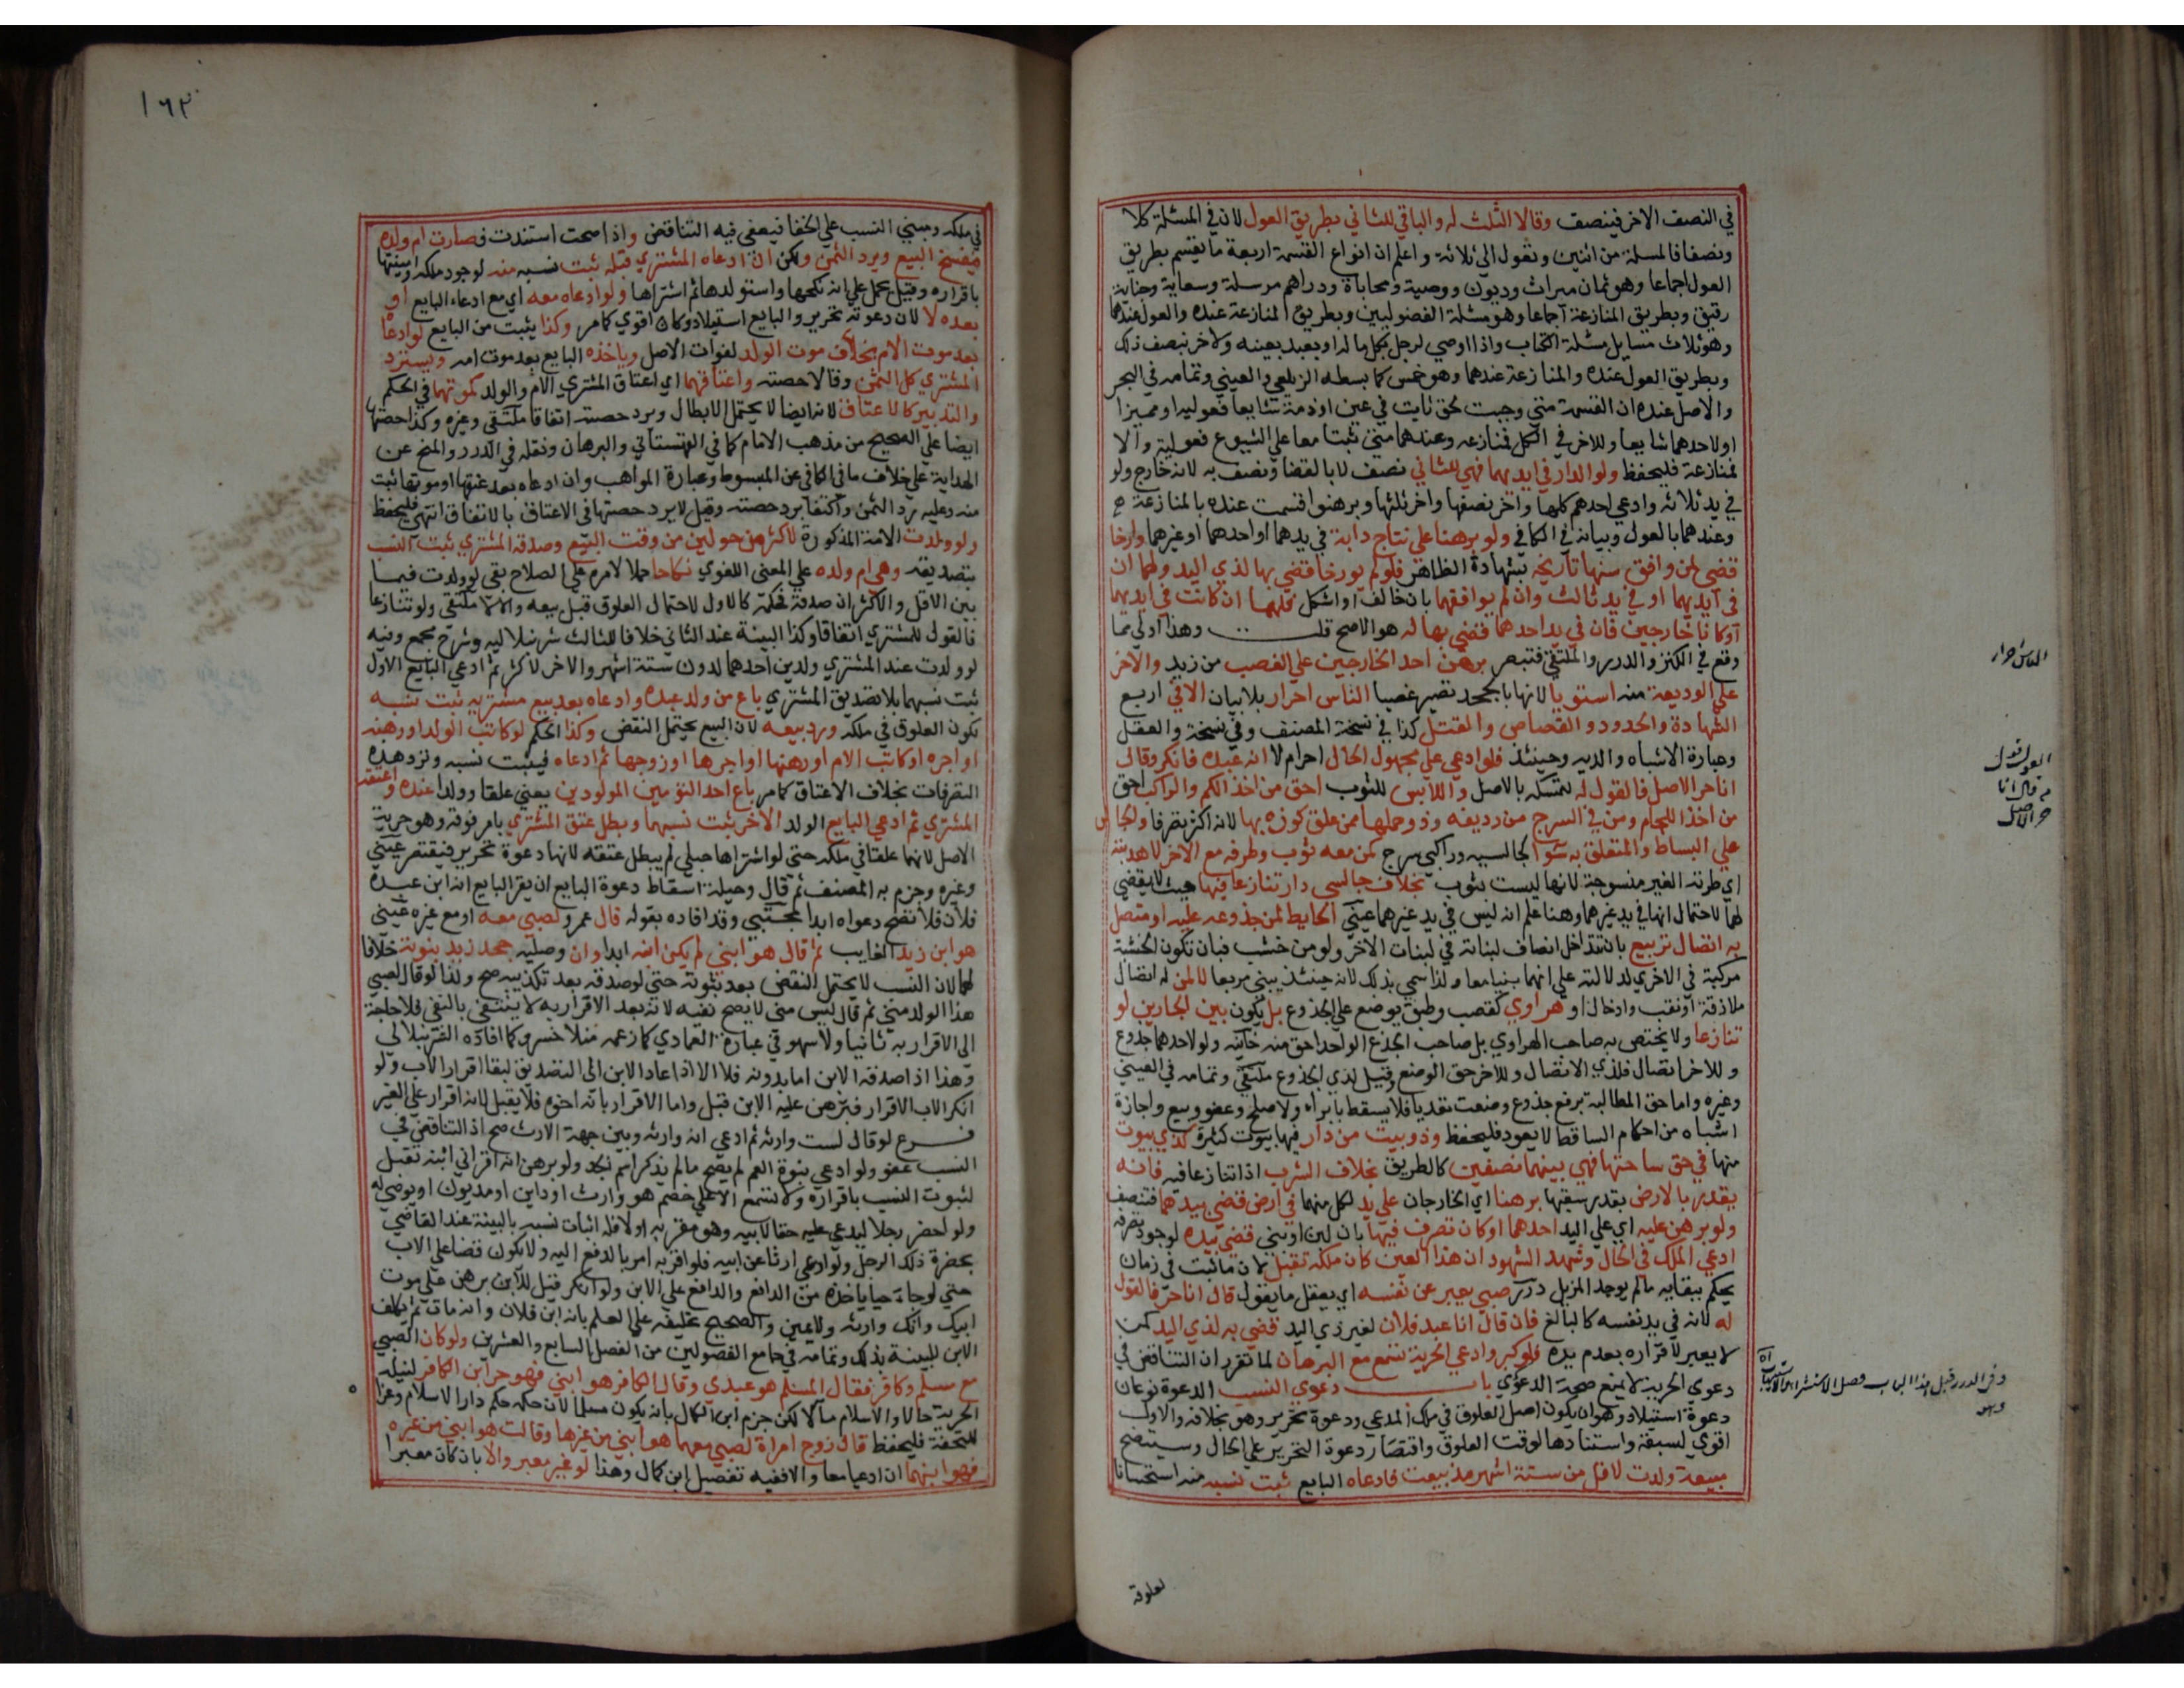 في النصف الاخر فينصف وقالا الثلث له والباقي للثاني بطريق العول لان في المسئلة كلا
ونصفا فالمسلة من اثنين وتعول الي ثلاثة واعلم ان انواع القسمة اربعة ما يقسم بطريق
العول اجماعا وهو ثمان ميراث وديون ووصية ومحاباة ودراهم مرسلة وسعاية وجناية
رقيق وبطريق المنازعة اجماعا وهو مسئلة الفضوليين وبطريق المنازعة عنده والعول عندهما
وهو ثلاث مسايل مسئلة الكتاب واذا اوصي لرجل بكل ماله او بعبد بعينه ولاخر بنصف ذلك
وبطريق العول عنده والمنازعة عندهما وهو خمس كما بسطه الزيلعي والعيني وتمامه في البحر
والاصل عنده ان القسمة متي وجبت لحق ثابت في عين او ذمة شايعا فعولية او مميزا
او لاحدهما شايعا وللاخر في الكل فمنازعه وعندهما متي ثبتا معا علي الشيوع فعولية والا
فمنازعة فليحفظ ولو الدار في ايديهما فهي للثاني نصف لا بالقضا ونصف به لانه خارج ولو
في يد ثلاثه وادعي احدهم كلها واخر نصفها واخر ثلثها وبرهنوا قسمت عنده بالمنازعة
وعندهما بالعول وبيانه في الكافي ولو برهنا علي نتاج دابة في يدهما او احدهما او غيرهما وارخا
قضي لمن وافق سنها تاريخه بشهادة الظاهر فلو لم يورخا قضي بها لذي اليد ولهما ان
في ايديهما او في يد ثالث وان لم يوافقهما بان خالف او اشكل فلهما ان كانت في ايديهما
او كانا خارجين فان في يد احدهما قضي بها له هو الاصح قلت وهذا اولي مما
وقع في الكنز والدرر والملتقي فتبصر برهن احد الخارجين علي الغصب من زيد والاخر
علي الوديعة منه استويا لانها بالجحد تصير غصبا الناس احرار بلا بيان الا في اربع
الشهادة والحدود والقصاص والقتل كذا في نسخة المصنف وفي نسخة والعقل
وعبارة الاشباه والديه وحينئذ فلو ادعي علي مجهول الحال احر ام لا انه عبده فانكر وقال
انا حر الاصل فالقول له لتمسكه بالاصل واللابس للثوب احق من اخذ الكم والراكب احق
من اخذ اللجام ومن في السرج من رديفه وذو حملها ممن علق كوزه بها لانه اكثر تصرفا والجالس
علي البساط والمتعلق به سوا كجالسيه وراكبي سرج كمن معه ثوب وطرفه مع الاخر لا هدبته
اي طرته الغير منسوجة لانها ليست بثوب بخلاف جالسي دار تنازعا فيها حيث لا يقضي
لهما لاحتمال انها في يد غيرهما وهنا علم انه ليس في يد غيرهما عيني الحايط لمن جذوعه عليه او متصل
به اتصال تربيع بان تتداخل انصاف لبناته في لبنات الاخر ولو من خشب فبان تكون الخشبة
مركبة في الاخري لدلالته علي انهما بنيا معا ولذا سمي بذلك لانه حينئذ يبني مربعا لا لمن له اتصال
ملازقة او نقب وادخال او هراوي كقصب وطبق يوضع علي الجذوع بل يكون بين الجارين لو
تنازعا ولا يختص به صاحب الهراوي بل صاحب الجذع الواحد احق منه خانية ولو لاحدهما جذوع
وللاخر اتصال فلذي الاتصال وللاخر حق الوضع وقيل لذي الجذوع ملتقي وتمامه في العيني
وغيره واما حق المطالبة برفع جذوع وضعت تعديا فلا يسقط بابراء ولا صلح وعفو وبيع واجازة
اشباه من احكام الساقط لا يعود فليحفظ وذو بيت من دار فيها بيوت كثيرة كذي بيوت
منها في حق ساحتها فهي بينهما نصفين كالطريق بخلاف الشرب اذا تنازعا فيه فانه
يقدر بالارض بقدر سقيها برهنا اي الخارجان علي يد لكل منهما في ارض قضي بيدهما فتنصف
ولو برهن عليه اي علي اليد احدهما او كان تصرف فيها بان لبن او بني قضي بيده لوجود تصرفه
ادعي الملك في الحال وشهد الشهود ان هذا العين كان ملكه تقبل لان ما ثبت في زمان
يحكم ببقايه ما لم يوجد المزيل درر صبي يعبر عن نفسه اي يعقل ما يقول قال انا حر فالقول
له لانه في يد نفسه كالبالغ فان قال انا عبد فلان لغير ذي اليد قضي به لذي اليد كمن
لا يعبر لاقراره بعدم يده فلو كبر وادعي الحرية تسمع مع البرهان لما تقرر ان التناقض في
دعوي الحرية لا يمنع صحة الدعوي باب دعوي النسب الدعوة نوعان
دعوة استيلاد وهو ان يكون اصل العلوق في ملك المدعي ودعوة تحرير وهو بخلافه والاول
اقوي لسبقه واستنادها لوقت العلوق واقتصار دعوة التحرير علي الحال وسيتضح
مبيعة ولدت لاقل من ستة اشهر مذ بيعت فادعاه البايع ثبت نسبه منه استحسانا
لعلوقه
الناس احرار
القول قول
من قال انا
حر الاصل
وفي الدرر قبل هذا الباب فصل
١٦٢
في ملكه ومبني النسب علي الخفا فيعفي فيه التناقض واذا صحت استندت فصارت ام ولده
فيفسخ البيع ويرد الثمن ولكن ان ادعاه المشتري قبله ثبت نسبه منه لوجود ملكه واميتها
باقراره وقيل يحمل علي انه نكحها واستولدها ثم اشتراها ولو ادعاه معه اي مع ادعاء البايع او
بعده لا لان دعوته تحرير والبايع استيلاد وكان اقوي كما مر وكذا يثبت من البايع لو ادعاه
بعد موت الام بخلاف موت الولد لفوات الاصل وياخذه البايع بعد موت امه ويسترد
المشتري كل الثمن وقالا حصته واعتاقهما اي اعتاق المشتري الام والولد كموتهما في الحكم
والتدبير كالاعتاق لانه ايضا لا يحتمل الابطال ويرد حصته اتفاقا ملتقي وغيره وكذا حصتها
ايضا علي الصحيح من مذهب الامام كما في القهستاني والبرهان ونقله في الدرر والمنح عن
الهداية علي خلاف ما في الكافي عن المبسوط وعبارة المواهب وان ادعاه بعد عتقها او موتها ثبت
منه وعليه رد الثمن واكتفا برد حصته وقيل لا يرد حصتها في الاعتاق بالاتفاق انتهي فليحفظ
ولو ولدت الامة المذكورة لاكثر من حولين من وقت البيع وصدقه المشتري ثبت النسب
بتصديقه وهي ام ولده علي المعني اللغوي نكاحا حملا لامره علي الصلاح بقي لو ولدت فيما
بين الاقل والاكثر ان صدقه فحكمه كالاول لاحتمال العلوق قبل بيعه والا لا ملتقي ولو تنازعا
فالقول للمشتري اتفاقا وكذا البينة عند الثاني خلافا للثالث شرنبلاليه وشرح مجمع وفيه
لو ولدت عند المشتري ولدين احدهما لدون ستة اشهر والاخر لاكثر ثم ادعي البايع الاول
ثبت نسبهما بلا تصديق المشتري باع من ولد عبده وادعاه بعد بيع مشتريه ثبت نسبه
لكون العلوق في ملكه ورد بيعه لان البيع يحتمل النقض وكذا الحكم لو كاتب الولد او رهنه
او اجره او كاتب الام او رهنها او اجرها او زوجها ثم ادعاه فيثبت نسبه وترد هذه
التصرفات بخلاف الاعتاق كما مر باع احد التؤمين المولودين يعني علقا وولدا عنده واعتقه
المشتري ثم ادعي البايع الولد الاخر ثبت نسبهما وبطل عتق المشتري بامر فوقه وهو حرية
الاصل لانهما علقا في ملكه حتي لو اشتراها حبلي لم يبطل عتقه لانها دعوة تحرير فتقتصر عيني
وغيره وجزم به المصنف ثم قال وحيلة اسقاط دعوة البايع ان يقر البايع انه ابن عبده
فلان فلا تصح دعواه ابدا مجتبي وقد افاده بقوله قال عمرو لصبي معه او مع غيره عيني
هو ابن زيد الغايب ثم قال هو ابني لم يكن ابنه ابدا وان وصليه جحد زيد بنوته خلافا
لهما لان النسب لا يحتمل النقض بعد ثبوته حتي لو صدقه بعد تكذيبه صح ولذا لو قال لصبي
هذا الولد مني ثم قال ليس مني لا يصح نفيه لانه بعد الاقرار به لا ينتفي بالنفي فلا حاجة
الي الاقرار به ثانيا ولا سهو في عبارة العمادي كما زعمه منلا خسرو كما افاده الشرنبلالي
وهذا اذا صدقه الابن اما بدونه فلا الا اذا عاد الابن الي التصديق لبقا اقرار الاب ولو
انكر الاب الاقرار فبرهن عليه الابن قبل واما الاقرار بانه اخوه فلا يقبل لانه اقرار علي الغير
فرع لو قال لست وارثه ثم ادعي انه وارثه وبين جهة الارث صح اذ التناقض في
النسب عفو ولو ادعي بنوة العم لم يصح ما لم يذكر اسم الجد ولو برهن انه اقر اني ابنه تقبل
لثبوت النسب باقراره ولا تسمع الا علي خصم هو وارث او داين او مديون او موصي له
ولو احضر رجلا ليدعي عليه حقا لابيه وهو مقر به او لا فله اثبات نسبه بالبينة عند القاضي
بحضرة ذلك الرجل ولو ادعي ارثا عن ابيه فلو اقر به امر بالدفع اليه ولا يكون قضا علي الاب
حتي لو جاء حيا ياخذه من الدافع والدافع علي الابن ولو انكر قيل للابن برهن علي موت
ابيك وانك وارثه ولا يمين والصحيح تحليفه علي العلم بانه ابن فلان وانه مات ثم يكلف
الابن للبينة بذلك وتمامه في جامع الفصولين من الفصل السابع والعشرين ولو كان الصبي
مع مسلم وكافر فقال المسلم هو عبدي وقال الكافر هو ابني فهو حر ابن الكافر لنيله
الحرية حالا والاسلام مآلا لكن جزم ابن الكمال بانه يكون مسلما لان حكمه حكم دار الاسلام وعزا
للتحفة فليحفظ قال زوج امراة لصبي معهما هو ابني من غيرها وقالت هو ابني من غيره
فهو ابنهما ان ادعيا معا والا ففيه تفصيل ابن كمال وهذا لو غير معبر والا بان كان معبرا